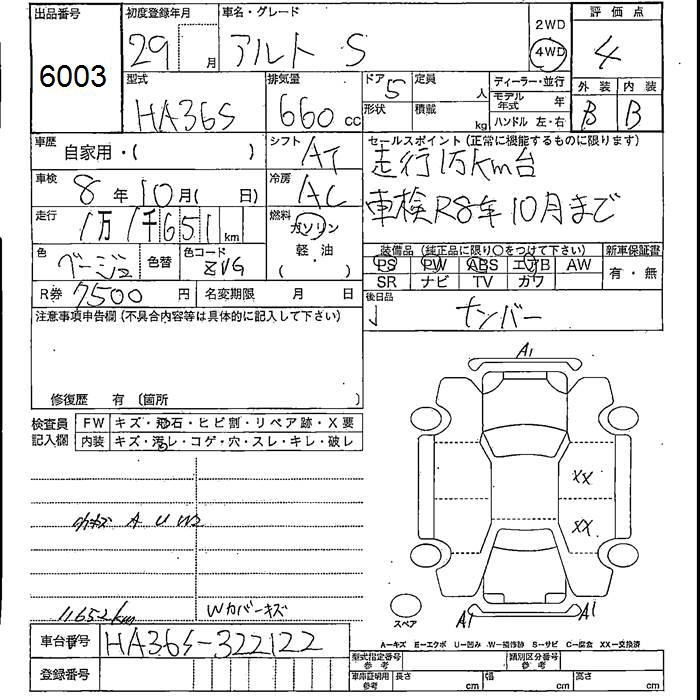 出品番号
6003
初度登録年月
29 月
車名・グレード
アルト S
2WD
4WD
評価点
4
外装 内装
B B
型式
HA36S
排気量
660 cc
ドア 5
形状
定員 人
積載 kg
ディーラー・並行
モデル年式 年
ハンドル 左・右
車歴
自家用・( )
シフト
AT
セールスポイント(正常に機能するものに限ります)
走行1万km台
車検R8年10月まで
車検
8年10月( 日)
冷房
AC
走行
1万1千651km
燃料
ガソリン
軽・油
( )
色
ベージュ
色替
色コード
ZVG
装備品(純正品に限り○をつけて下さい)
PS PW ABS エアB AW
SR ナビ TV カワ
新車保証書
有・無
R券 7500 円
名変期限 月 日
後日品
ナンバー
注意事項申告欄(不具合内容等は具体的に記入して下さい)
修復歴 有(箇所 )
検査員記入欄
FW キズ・飛石・ヒビ割・リペア跡・X要
内装 キズ・汚レ・コゲ・穴・スレ・キレ・破レ
A U W2
11652km
Wカバーキズ
A1
XX
XX
A1
A1
スペア
A-キズ E-エクボ U-凹み W-補修跡 S-サビ C-腐食 XX-交換済
車台番号
HA36S-322122
登録番号
型式指定番号 参考
類別区分番号 参考
車庫証明用 参考
長さ cm
幅 cm
高さ cm